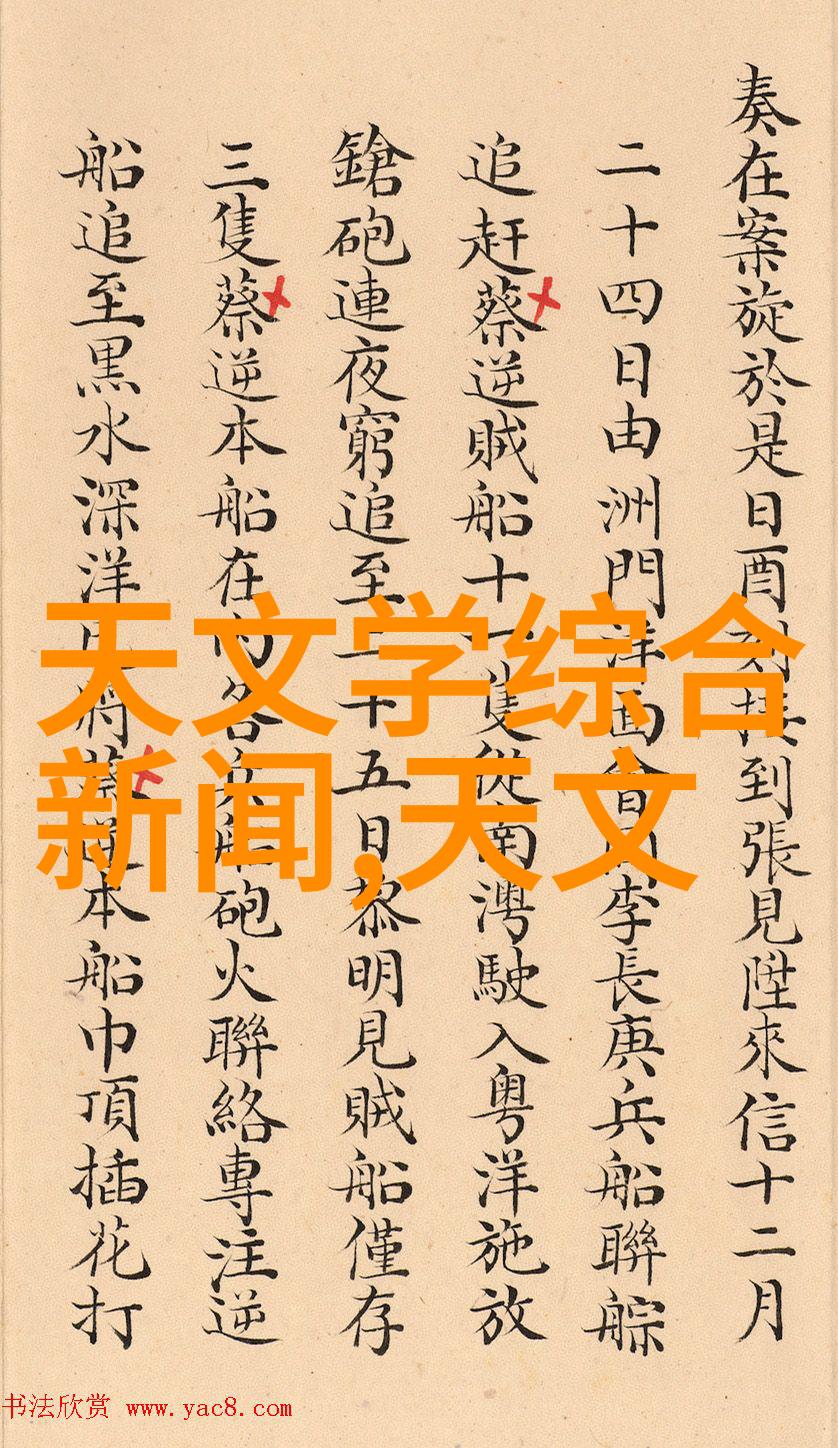 奏在案旋於是日酉刻接到張見陞來信十二月
二十四日由洲門洋面會同李長庚兵船聯䑸
追赶蔡逆賊船十一隻從南灣駛入粵洋施放
鎗砲連夜窮追至二十五日黎明見賊船僅存
三隻蔡逆本船在內各兵船砲火聯絡專注逆
船追至黑水深洋已將蔡逆本船巾頂插花打
天文学综合
新闻,天文
书法欣赏 www.yac8.com